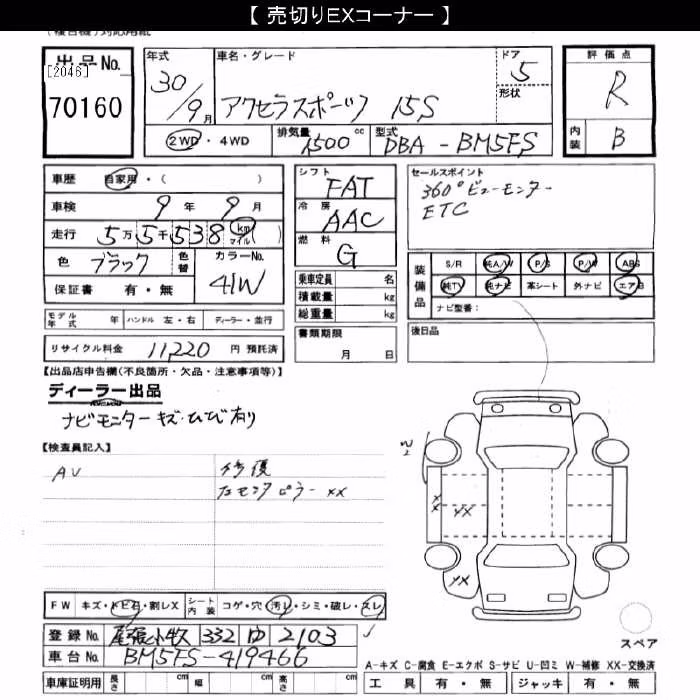 【 売切りEXコーナー 】
(複合機)対応用紙
出品No.
[2046]
70160
年式
30/9月
車名・グレード
アクセラスポーツ 15S
ドア
5
形状
評価点
R
内装
B
2WD・4WD
排気量
1500 cc
型式
DBA - BM5FS
車歴 自家用・( )
車検 9年 9月
走行 5万5千538 km マイル ( )
色 ブラック 色替
カラーNo.
41W
保証書 有・無
モデル年式 年 ハンドル 左・右 ディーラー・並行
リサイクル料金 11,220 円 預託済
シフト
FAT
冷房
AAC
燃料
G
乗車定員 名
積載量 kg
総重量 kg
書類期限
月 日
セールスポイント
360°ビューモニター
ETC
装備品
S/R 純A/W P/S P/W ABS
純TV 純ナビ 革シート 外ナビ エアB
ナビ型番:
後日品
【出品店申告欄(不良箇所・欠品・注意事項等)】
ディーラー出品
ナビモニターキズ・ひび有り
【検査員記入】
AV
修復
XX
XX
XX
XX
FW キズ・トビ石・割レX
シート内装 コゲ・穴・汚レ・シミ・破レ・スレ
登録No. 尾張小牧 332 ゆ 2103
車台No. BM5FS-419466
車庫証明用 長さ cm 幅 cm 高さ cm
スペア
A-キズ C-腐食 E-エクボ S-サビ U-凹ミ W-補修 XX-交換済
工具 有・無 ジャッキ 有・無